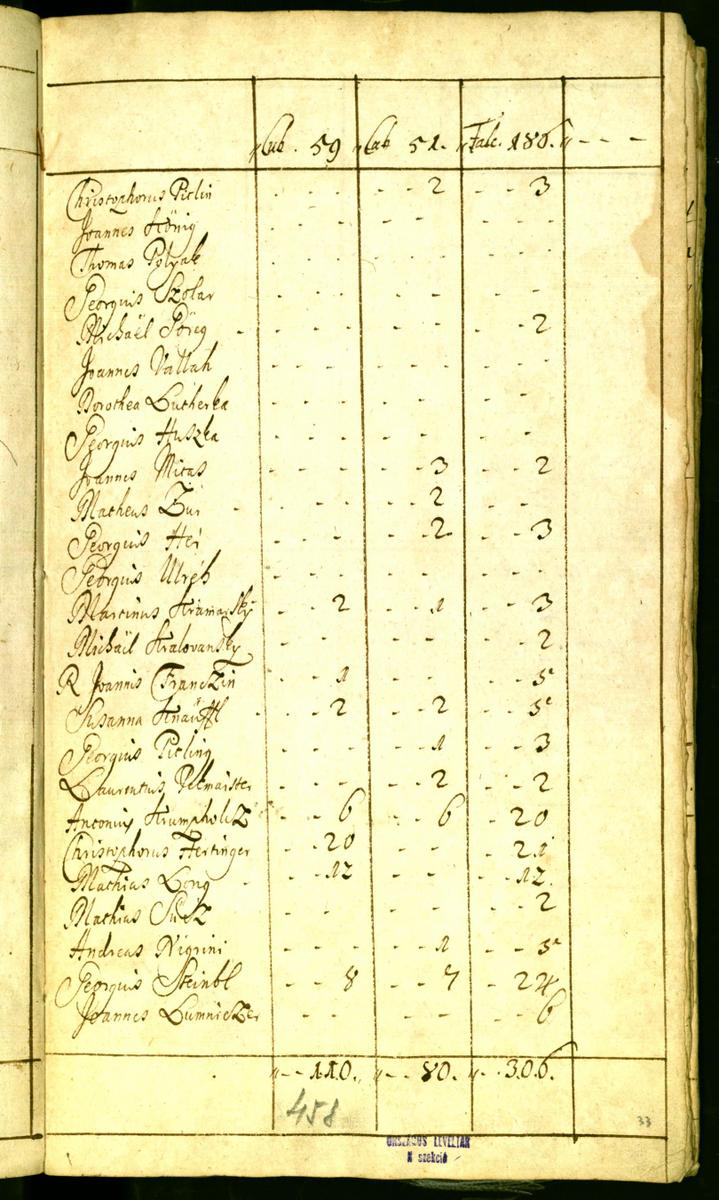 „Cub. 59 „Cub 51. „Falc. 186. „ - - -
Christophorus Pielin - - - - - 2 - - 3
Joannes König - - - - - - - - -
Thomas Polyak - - - - - - - - -
Georgius Szolar - - - - - - - - -
Michaël Pöreg - - - - - - - - - 2
Joannes Vallah - - - - - - - - -
Dorothea Lucherka - - - - - - - - -
Georgius Huszka - - - - - - - - -
Joannes Micas - - - - - - 3 - - 2
Matheus Zur - - - - - - - 2 - - -
Georgius Her - - - - - 2 - - 3
Georgius Ulreh - - - - - - - - -
Martinus Kramarsky - - 2 - - 1 - - 3
Michaël Kralovansky - - - - - - - - 2
R Joannis Franczin - - 1 - - - - - 5
Susanna Knäuffl - - - 2 - - 2 - - 5
Georgius Pieling - - - - - 1 - - 3
Laurentius Petmaister - - - - - 2 - - 2
Antonius Krumpholcz - - 6 - - 6 - - 20
Christophorus Hertinger - - 20 - - - - - 21
Mathias Long - - - 12 - - - - - 12.
Mathias Sücz - - - - - - - - 2
Andreas Nigrini - - - - - 1 - - 5
Georgius Steinbl - - 8 - - 7 - - 24
Joannes Lumniczer - - - - - - - 6
„ - - 110. „ - - 80. „ - - 306.
458
33
ORSZÁGOS LEVÉLTÁR
N szekció